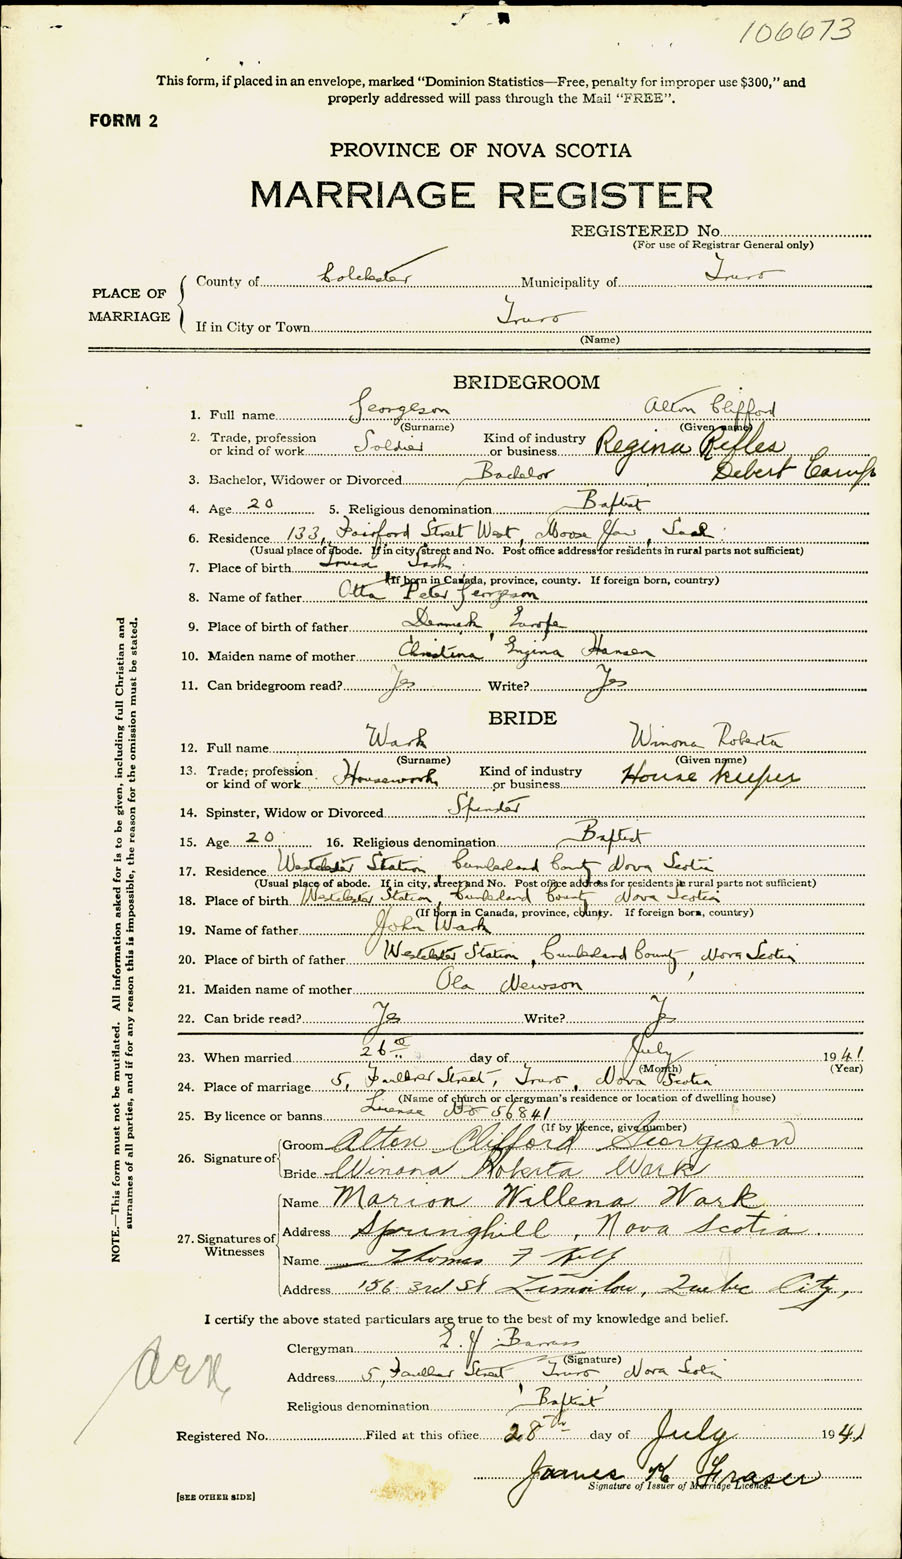 106673
This form, if placed in an envelope, marked "Dominion Statistics—Free, penalty for improper use $300," and
properly addressed will pass through the Mail "FREE".
FORM 2
PROVINCE OF NOVA SCOTIA
MARRIAGE REGISTER
REGISTERED No.
(For use of Registrar General only)
PLACE OF MARRIAGE
County of Colchester Municipality of Truro
If in City or Town Truro
(Name)
BRIDEGROOM
1. Full name Georgeson Alton Clifford
(Surname) (Given name)
2. Trade, profession or kind of work Soldier Kind of industry or business Regina Rifles
Debert Camp
3. Bachelor, Widower or Divorced Bachelor
4. Age 20 5. Religious denomination Baptist
6. Residence 133, Fairford Street West, Moose Jaw, Sask.
(Usual place of abode. If in city, street and No. Post office address for residents in rural parts not sufficient)
7. Place of birth Sask.
(If born in Canada, province, county. If foreign born, country)
8. Name of father Otto Peter Georgeson
9. Place of birth of father Denmark, Europe
10. Maiden name of mother Christina Hansen
11. Can bridegroom read? Yes Write? Yes
BRIDE
12. Full name Wark Winona Roberta
(Surname) (Given name)
13. Trade, profession or kind of work Housework Kind of industry or business House keeper
14. Spinster, Widow or Divorced Spinster
15. Age 20 16. Religious denomination Baptist
17. Residence Westchester Station Cumberland County Nova Scotia
(Usual place of abode. If in city, street and No. Post office address for residents in rural parts not sufficient)
18. Place of birth Westchester Station, Cumberland County Nova Scotia
(If born in Canada, province, county. If foreign born, country)
19. Name of father John Wark
20. Place of birth of father Westchester Station, Cumberland County, Nova Scotia
21. Maiden name of mother Ola Newson
22. Can bride read? Yes Write? Yes
23. When married 26th day of July 1941
(Month) (Year)
24. Place of marriage 5, Faulkner Street, Truro, Nova Scotia
(Name of church or clergyman's residence or location of dwelling house)
25. By licence or banns License No 56841
(If by licence, give number)
26. Signature of
Groom Alton Clifford Georgeson
Bride Winona Roberta Wark
27. Signatures of Witnesses
Name Marion Willena Wark
Address Springhill, Nova Scotia.
Name Thomas F
Address 156 3rd St Limoilou, Quebec City,
I certify the above stated particulars are true to the best of my knowledge and belief.
Clergyman E. J. Barrass
(Signature)
Address 5, Faulkner Street Truro Nova Scotia
Religious denomination 'Baptist'
Registered No. Filed at this office 28th day of July 1941
James K Fraser
Signature of Issuer of Marriage Licence.
[SEE OTHER SIDE]
NOTE.—This form must not be mutilated. All information asked for is to be given, including full Christian and
surnames of all parties, and if for any reason this is impossible, the reason for the omission must be stated.